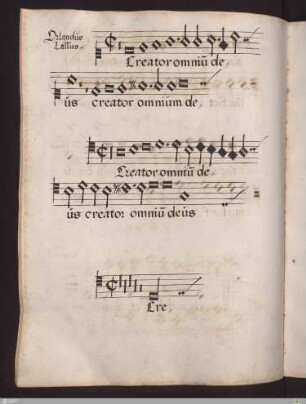 Orlandus
Lassus.
Creator omniū de
us creator omnium de
Creator omniū de
us creator omniū deus
Cre